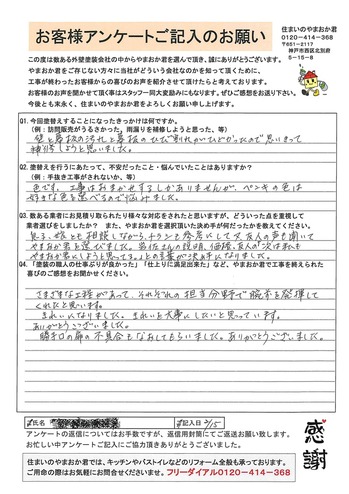 お客様アンケートご記入のお願い
住まいのやまおか君
0120-414-368
〒651-2117
神戸市西区北別府
5-15-8
この度は数ある外壁塗装会社の中からやまおか君を選んで頂き、誠にありがとうございます。
やまおか君をご存じない方々に当社がどういう会社なのかを知って頂くために、
工事が終わったお客様からの喜びのお声を紹介させて頂けたらと考えております。
お客様のお声を聞かせて頂く事はスタッフ一同大変励みにもなります。ぜひご感想をお送り下さい。
今後とも末永く、住まいのやまおか君をよろしくお願い申し上げます。
Q1. 今回塗替えすることになったきっかけは何ですか。
(例:訪問販売がうるさかった。雨漏りを補修しようと思った、等)
壁と幕板の汚れと幕板のひび割れがひどかったので思いきって
補修しようと思いました。
Q2. 塗替えを行うにあたって、不安だったこと・悩んでいたことはありますか?
(例:手抜き工事がされないか、等)
色です。工事はおまかせするしかありませんが、ペンキの色は
好きな色を選べるので悩みました。
Q3. 数ある業者にお見積り取られたり様々な対応をされたと思いますが、どういった点を重視して
業者選びをしましたか? また、やまおか君を選択頂いた決め手が何だったかを教えてください。
見る。娘とも相談しながら、チラシを参考にして又友人の声も聞いて
やまおか君を選びました。
との言葉が決め手になりました。
Q4. 「塗装の職人の仕事ぶりが良かった」「仕上りに満足出来た」など、やまおか君で工事を終えられた
喜びのご感想をお聞かせください。
さまざまな工程があって、それぞれの担当分野で腕前を発揮して
くれたと思います。
きれいになりました。きれいを大事にしたいと思っています。
ありがとうございました。
勝手口の扉の不具合もなおしてもらいました。ありがとうございました。
氏名
ご記入日 2/15
アンケートの返信についてはお手数ですが、返信用封筒にてご返送お願い致します。
お忙しい中アンケートにご記入にご協力頂きありがとうございました。
感謝
住まいのやまおか君では、キッチンやバストイレなどのリフォーム全般も承っております。
ご用命の際はお気軽にお問合せくださいませ。フリーダイアル0120-414-368